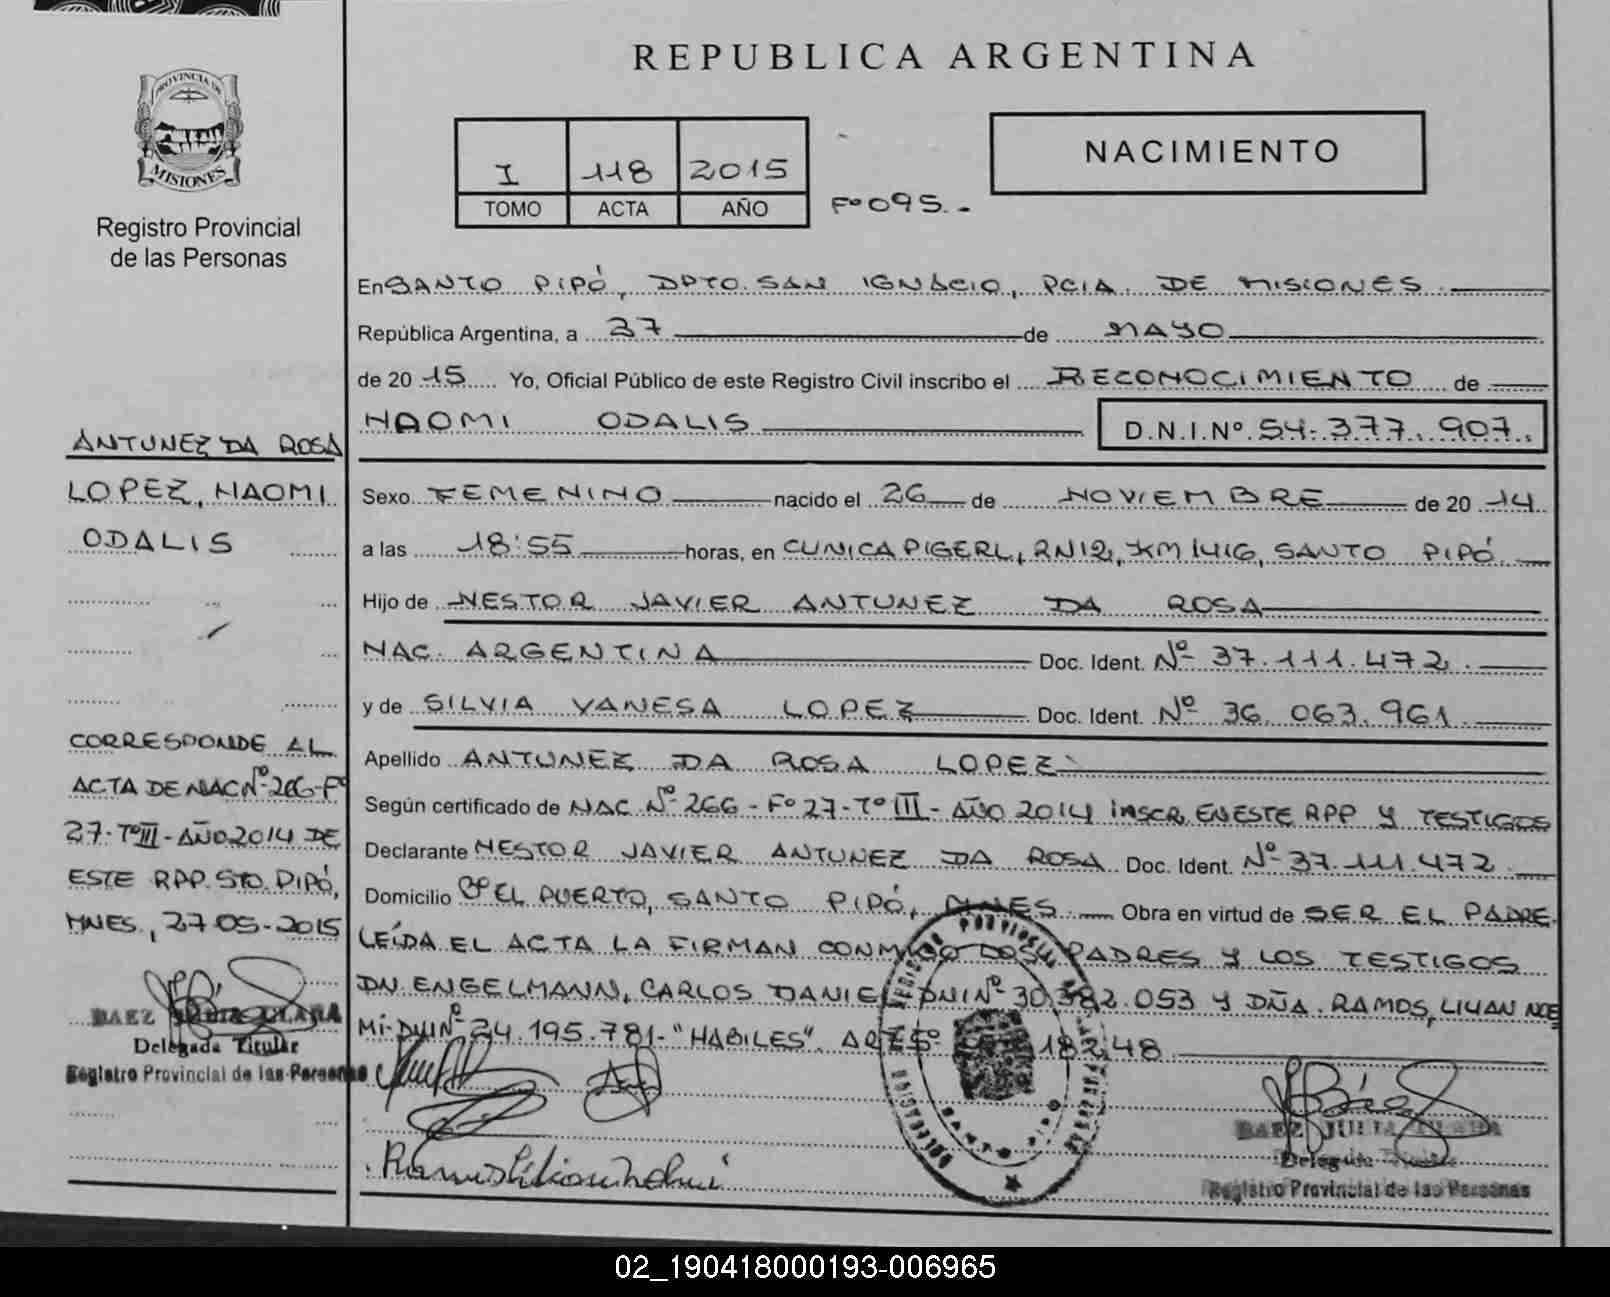 REPUBLICA ARGENTINA
PROVINCIA DE
MISIONES
Registro Provincial
de las Personas
I 118 2015
TOMO ACTA AÑO
Fº 095.-
NACIMIENTO
En SANTO PIPÓ, DPTO. SAN IGNACIO, PCIA. DE MISIONES
República Argentina, a 27 de MAYO
de 20 15 Yo, Oficial Público de este Registro Civil inscribo el RECONOCIMIENTO de
NAOMI ODALIS D.N.I.Nº 54.377.907.
Sexo FEMENINO nacido el 26 de NOVIEMBRE de 20 14
a las 18:55 horas, en CLINICA PIGERL, RN12, KM 1416, SANTO PIPÓ
Hijo de NESTOR JAVIER ANTUNEZ DA ROSA
NAC. ARGENTINA Doc. Ident. Nº 37.111.472
y de SILVIA VANESA LOPEZ Doc. Ident. Nº 36.063.961
Apellido ANTUNEZ DA ROSA LOPEZ
Según certificado de NAC. Nº 266 - Fº 27 - Tº III - AÑO 2014 INSCR. EN ESTE RPP Y TESTIGOS
Declarante NESTOR JAVIER ANTUNEZ DA ROSA Doc. Ident. Nº 37.111.472
Domicilio Bº EL PUERTO, SANTO PIPÓ, MNES. Obra en virtud de SER EL PADRE.
LEÍDA EL ACTA LA FIRMAN CONMIGO LOS PADRES Y LOS TESTIGOS
DN. ENGELMANN, CARLOS DANIEL DNI Nº 30.382.053 Y DÑA. RAMOS, LILIAN NOE
MÍ- DNI Nº 24.195.781- "HABILES".
ANTUNEZ DA ROSA
LOPEZ, NAOMI
ODALIS
CORRESPONDE AL
ACTA DE NAC Nº 266 - Fº
27 - Tº III - AÑO 2014 DE
ESTE RPP. STO. PIPÓ,
MNES., 27-05-2015
BAEZ JULIA
Delegada Titular
Registro Provincial de las Personas
BAEZ JULIA
Delegada Titular
Registro Provincial de las Personas
02_190418000193-006965